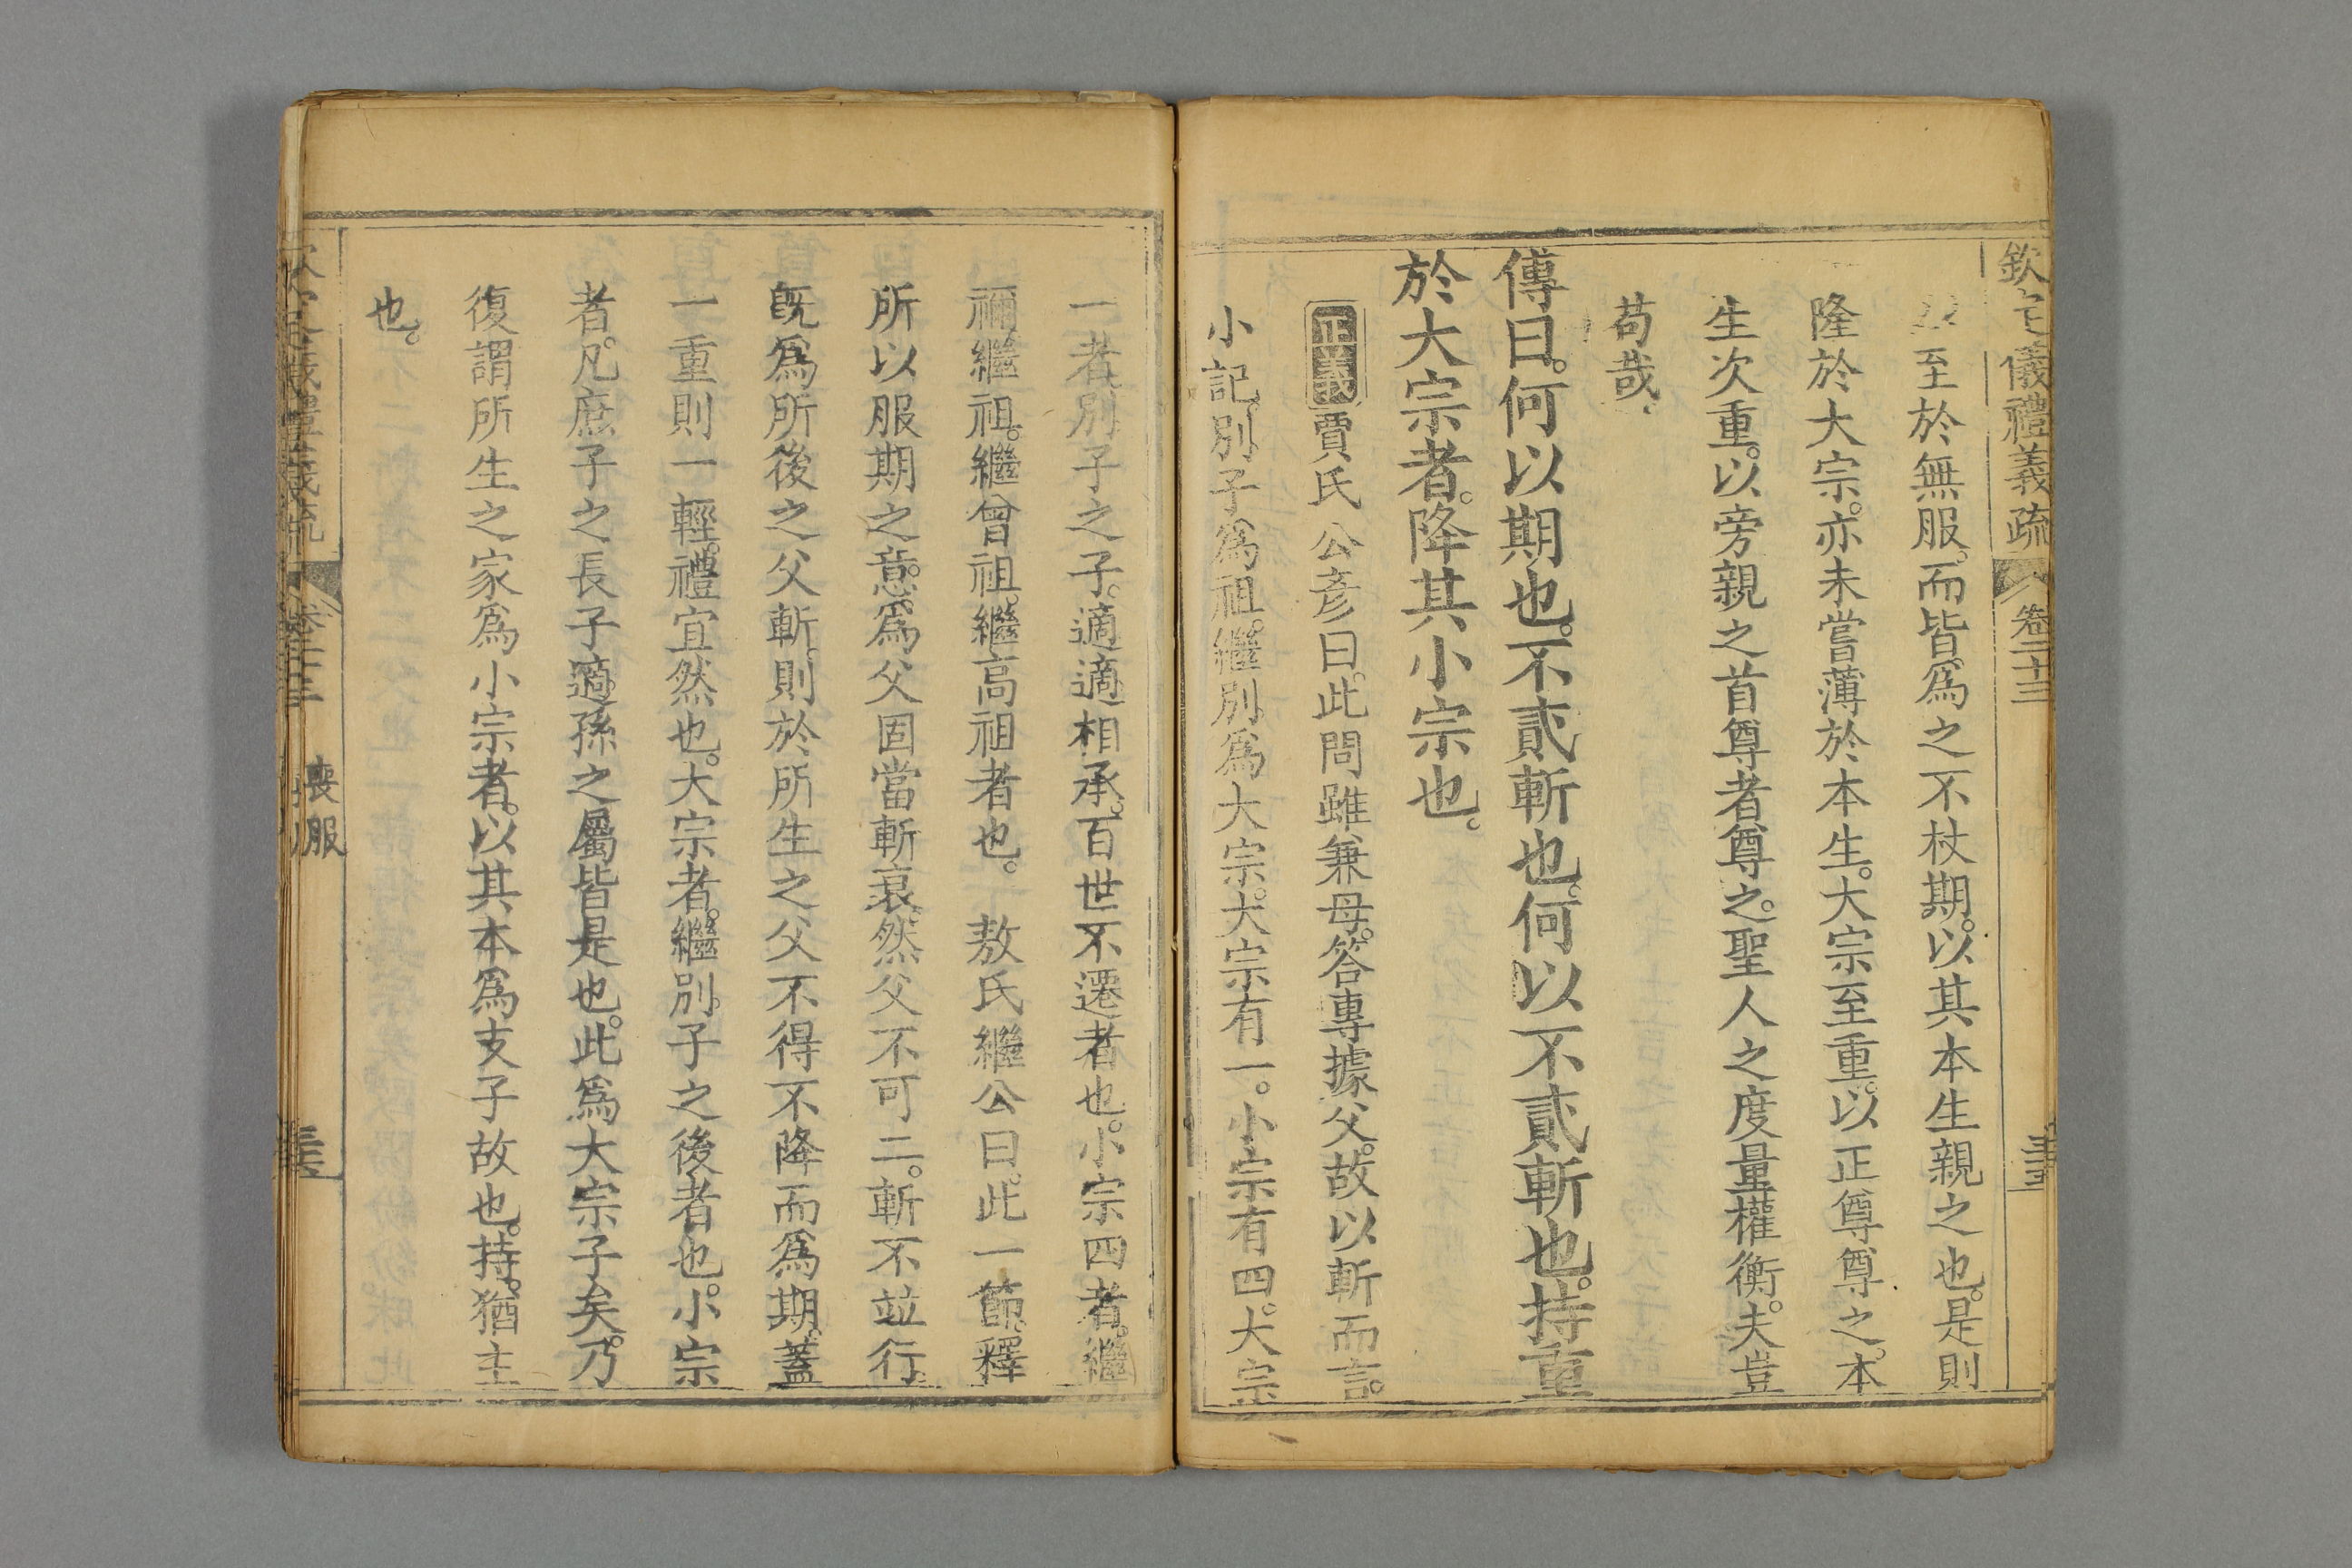 欽定儀禮義疏 卷二十三
至於無服。而皆爲之不杖期。以其本生親之也。是則
隆於大宗。亦未嘗薄於本生。大宗至重。以正尊尊之。本
生次重。以旁親之首尊者尊之。聖人之度量權衡。夫豈
苟哉。
傳曰。何以期也。不貳斬也。何以不貳斬也。持重
於大宗者。降其小宗也。
正義賈氏公彥曰。此問雖兼母。答專據父。故以斬而言。
小記。別子爲祖。繼別爲大宗。大宗有一。小宗有四。大宗
一者。別子之子。適適相承。百世不遷者也。小宗四者。繼
禰繼祖。繼曾祖。繼高祖者也。 敖氏繼公曰。此一節。釋
所以服期之意。爲父固當斬衰。然父不可二。斬不並行。
旣爲所後之父斬。則於所生之父不得不降而爲期。蓋
一重則一輕。禮宜然也。大宗者。繼別子之後者也。小宗
者。凡庶子之長子適孫之屬皆是也。此爲大宗子矣。乃
復謂所生之家爲小宗者。以其本爲支子故也。持。猶主
也。
喪服